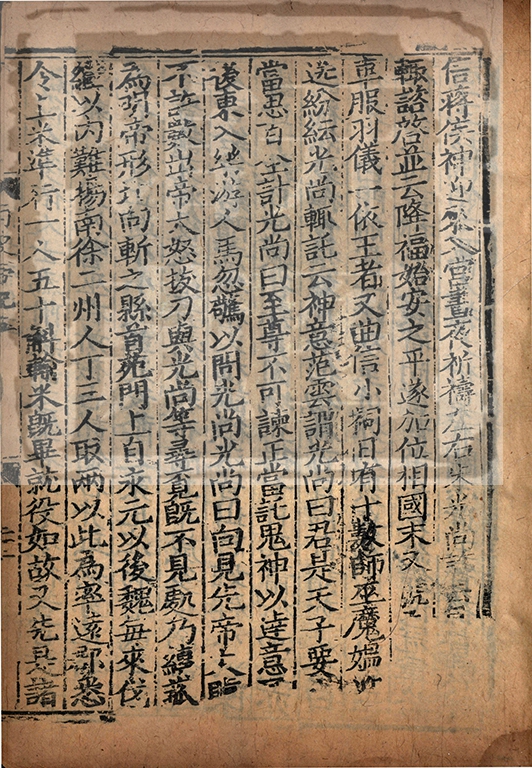 信蔣侯神迎來入宮晝夜祈禱左右朱光尚詐云
輒諮啓並云降福始安之平遂加位相國末又號
車服羽儀一依王者又曲信小祠日有十數師巫魔媼
送紛紜光尚輒託云神意范雲謂光尚曰君是天子要
當思百全計光尚曰至尊不可諫正當託鬼神以達意
後東入樂游人馬忽驚以問光尚光尚曰向見先帝大瞋
不許數出帝大怒拔刀與光尚等尋覔旣不見處乃縛菰
為明帝形北向斬之縣首苑門上自永元以後魏每來伐
繼以內難揚南徐二州人丁三人取兩以此為率遠郡悉
令上米準行一人五十斛輸米旣畢就役如故又先是諸